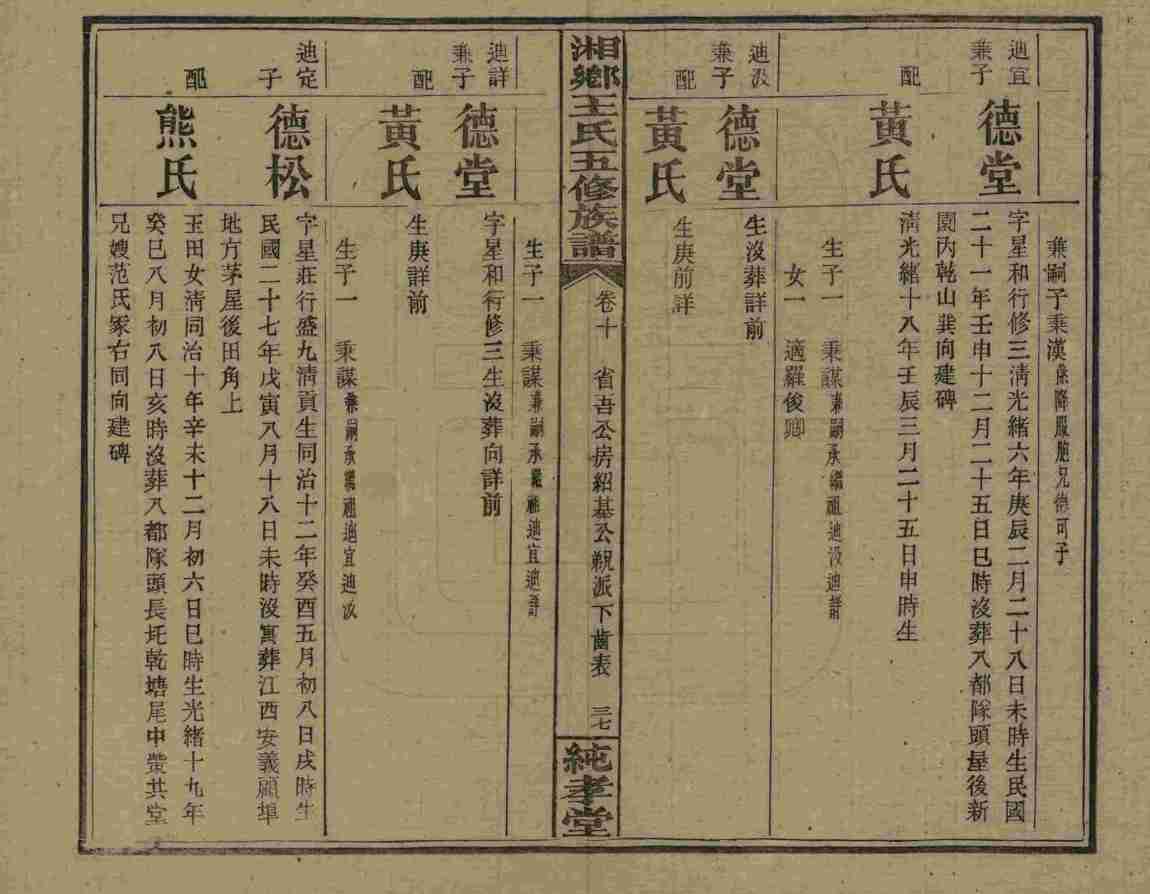 兼嗣子秉漢係降服胞兄德可子
迪宜
兼子
德堂
字星和行修三淸光緒六年庚辰二月二十八日未時生民國
二十一年壬申十二月二十五日巳時沒葬八都隊頭屋後新
園內乾山巽向建碑
配
黃氏
淸光緒十八年壬辰三月二十五日申時生
生子一 秉謀兼嗣承繼祖迪汲迪詳
女一 適羅俊卿
迪汲
兼子
德堂
生沒葬詳前
配
黃氏
生庚前詳
湘鄉王氏五修族譜
卷十 省吾公房紹基公親派下齒表 三七
純孝堂
生子一 秉謀兼嗣承繼祖迪宜迪詳
迪詳
兼子
德堂
字星和行修三生沒葬向詳前
配
黃氏
生庚詳前
生子一 秉謀兼嗣承繼祖迪宜迪汲
迪定
子
德松
字星莊行盛九淸貢生同治十二年癸酉五月初八日戌時生
民國二十七年戊寅八月十八日未時沒寓葬江西安義顧埠
地方茅屋後田角上
配
熊氏
玉田女淸同治十年辛未十二月初六日巳時生光緒十九年
癸巳八月初八日亥時沒葬八都隊頭長圫乾塘尾中塋共堂
兄嫂范氏冢右同向建碑